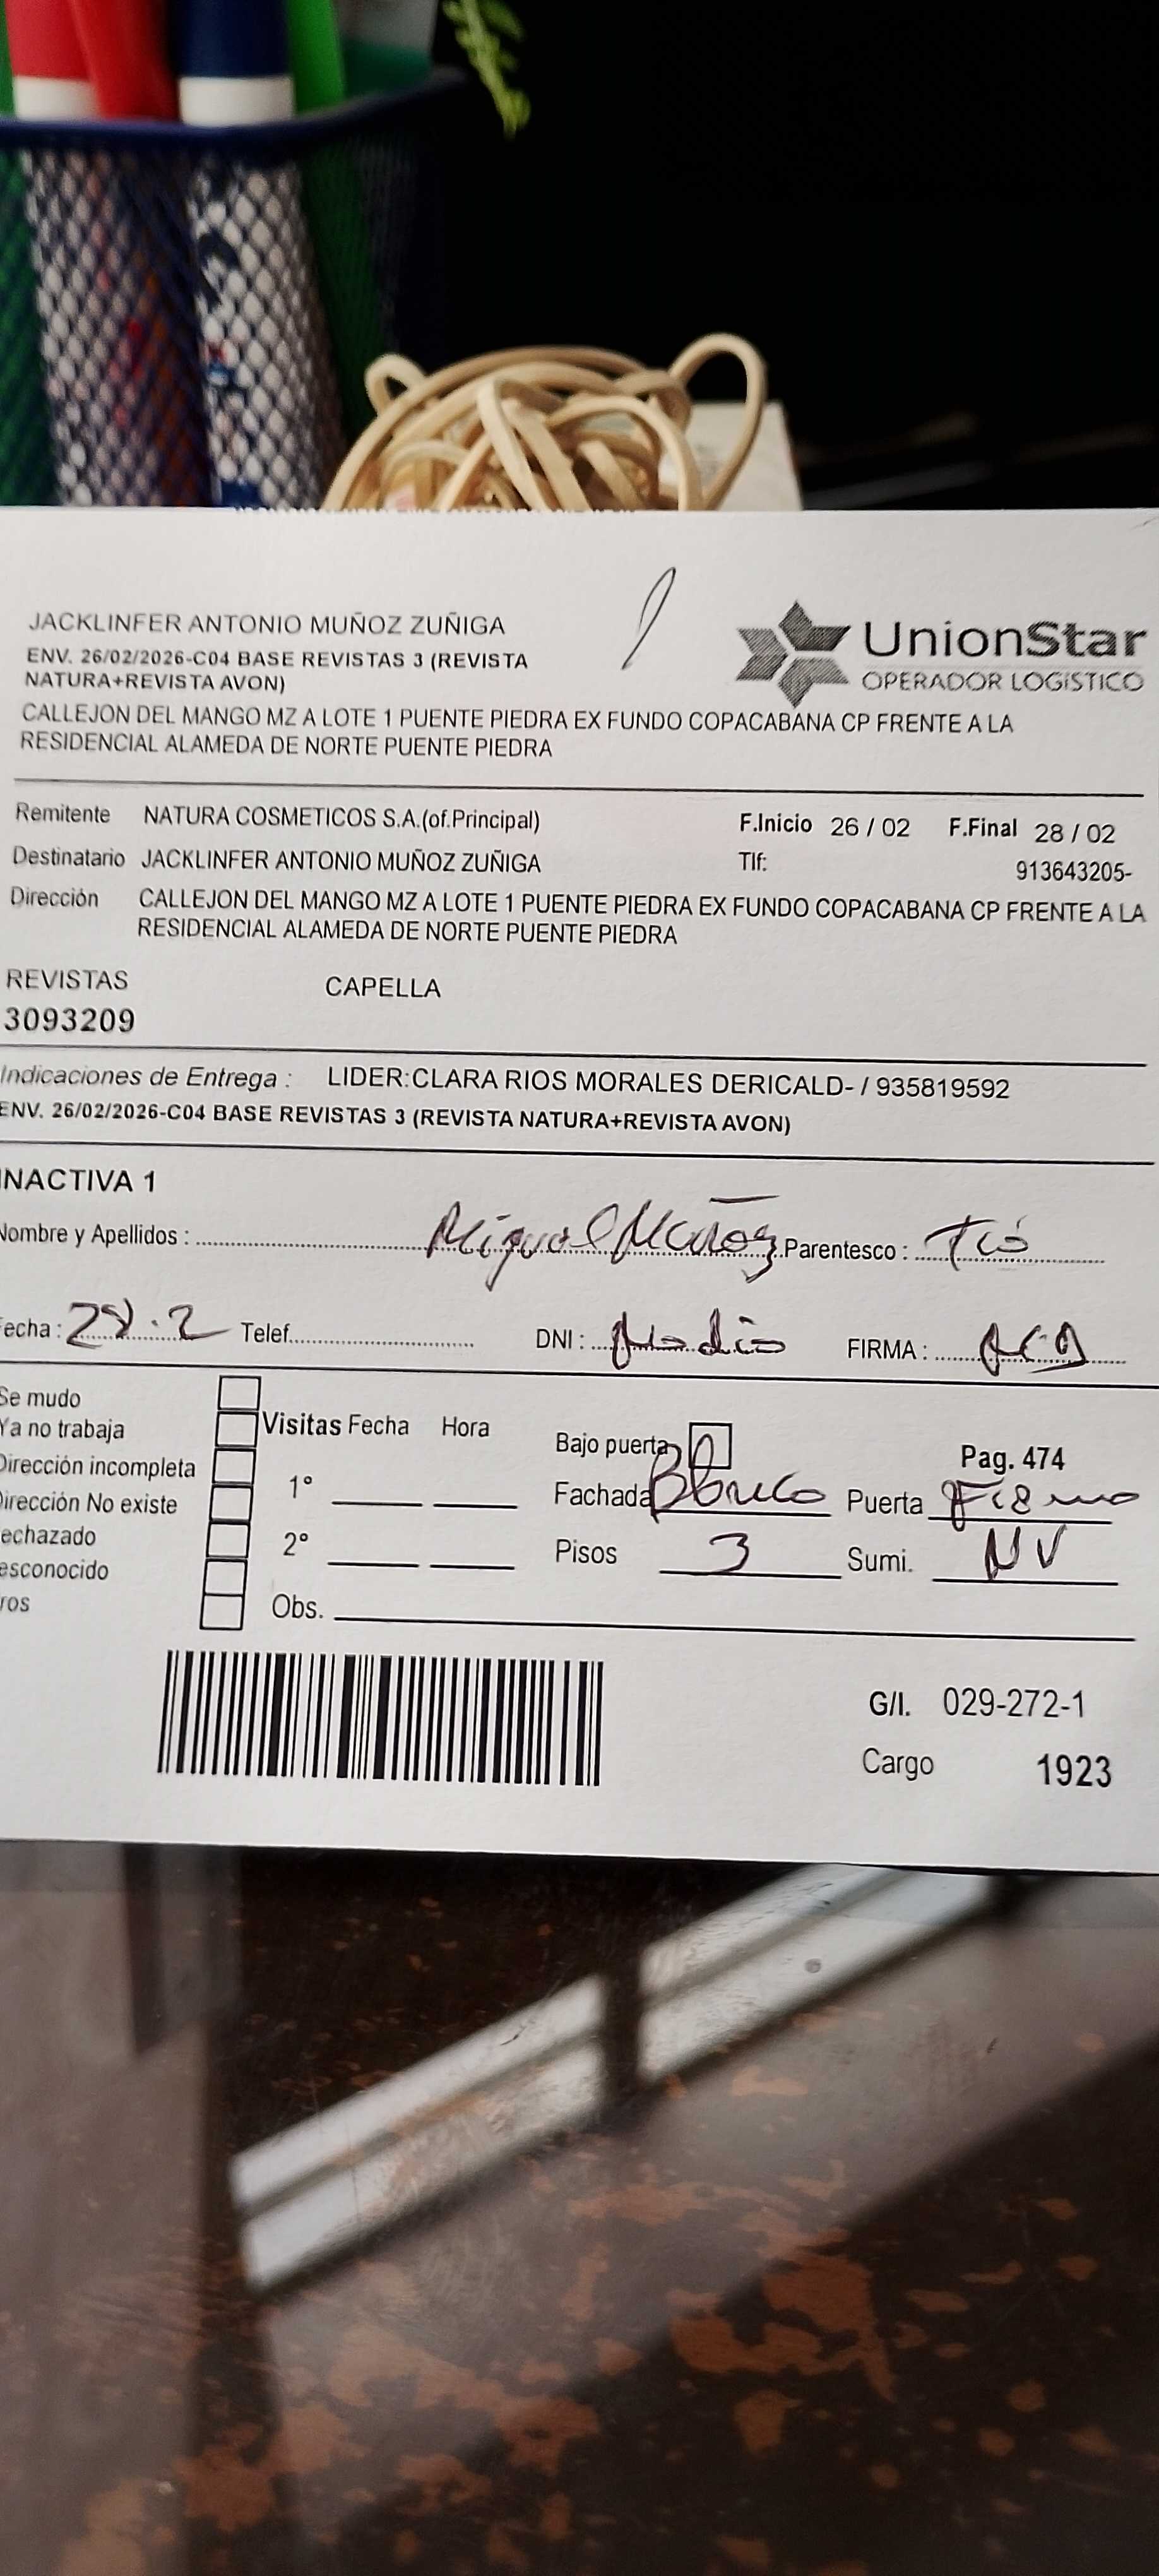 JACKLINFER ANTONIO MUÑOZ ZUÑIGA
ENV. 26/02/2026-C04 BASE REVISTAS 3 (REVISTA
NATURA+REVISTA AVON)
UnionStar
OPERADOR LOGÍSTICO
CALLEJON DEL MANGO MZ A LOTE 1 PUENTE PIEDRA EX FUNDO COPACABANA CP FRENTE A LA
RESIDENCIAL ALAMEDA DE NORTE PUENTE PIEDRA
Remitente NATURA COSMETICOS S.A.(of.Principal) F.Inicio 26 / 02 F.Final 28 / 02
Destinatario JACKLINFER ANTONIO MUÑOZ ZUÑIGA Tlf: 913643205-
Dirección CALLEJON DEL MANGO MZ A LOTE 1 PUENTE PIEDRA EX FUNDO COPACABANA CP FRENTE A LA
RESIDENCIAL ALAMEDA DE NORTE PUENTE PIEDRA
REVISTAS CAPELLA
3093209
Indicaciones de Entrega : LIDER:CLARA RIOS MORALES DERICALD- / 935819592
ENV. 26/02/2026-C04 BASE REVISTAS 3 (REVISTA NATURA+REVISTA AVON)
INACTIVA 1
Nombre y Apellidos : Miguel Muñoz Parentesco : Tió
echa : 28.2 Telef. DNI : FIRMA :
Se mudo
Ya no trabaja Visitas Fecha Hora Bajo puerta
Dirección incompleta Pag. 474
irección No existe 1° Fachada Blanco Puerta
echazado 2° Pisos 3 Sumi. NV
esconocido
ros Obs.
G/I. 029-272-1
Cargo 1923